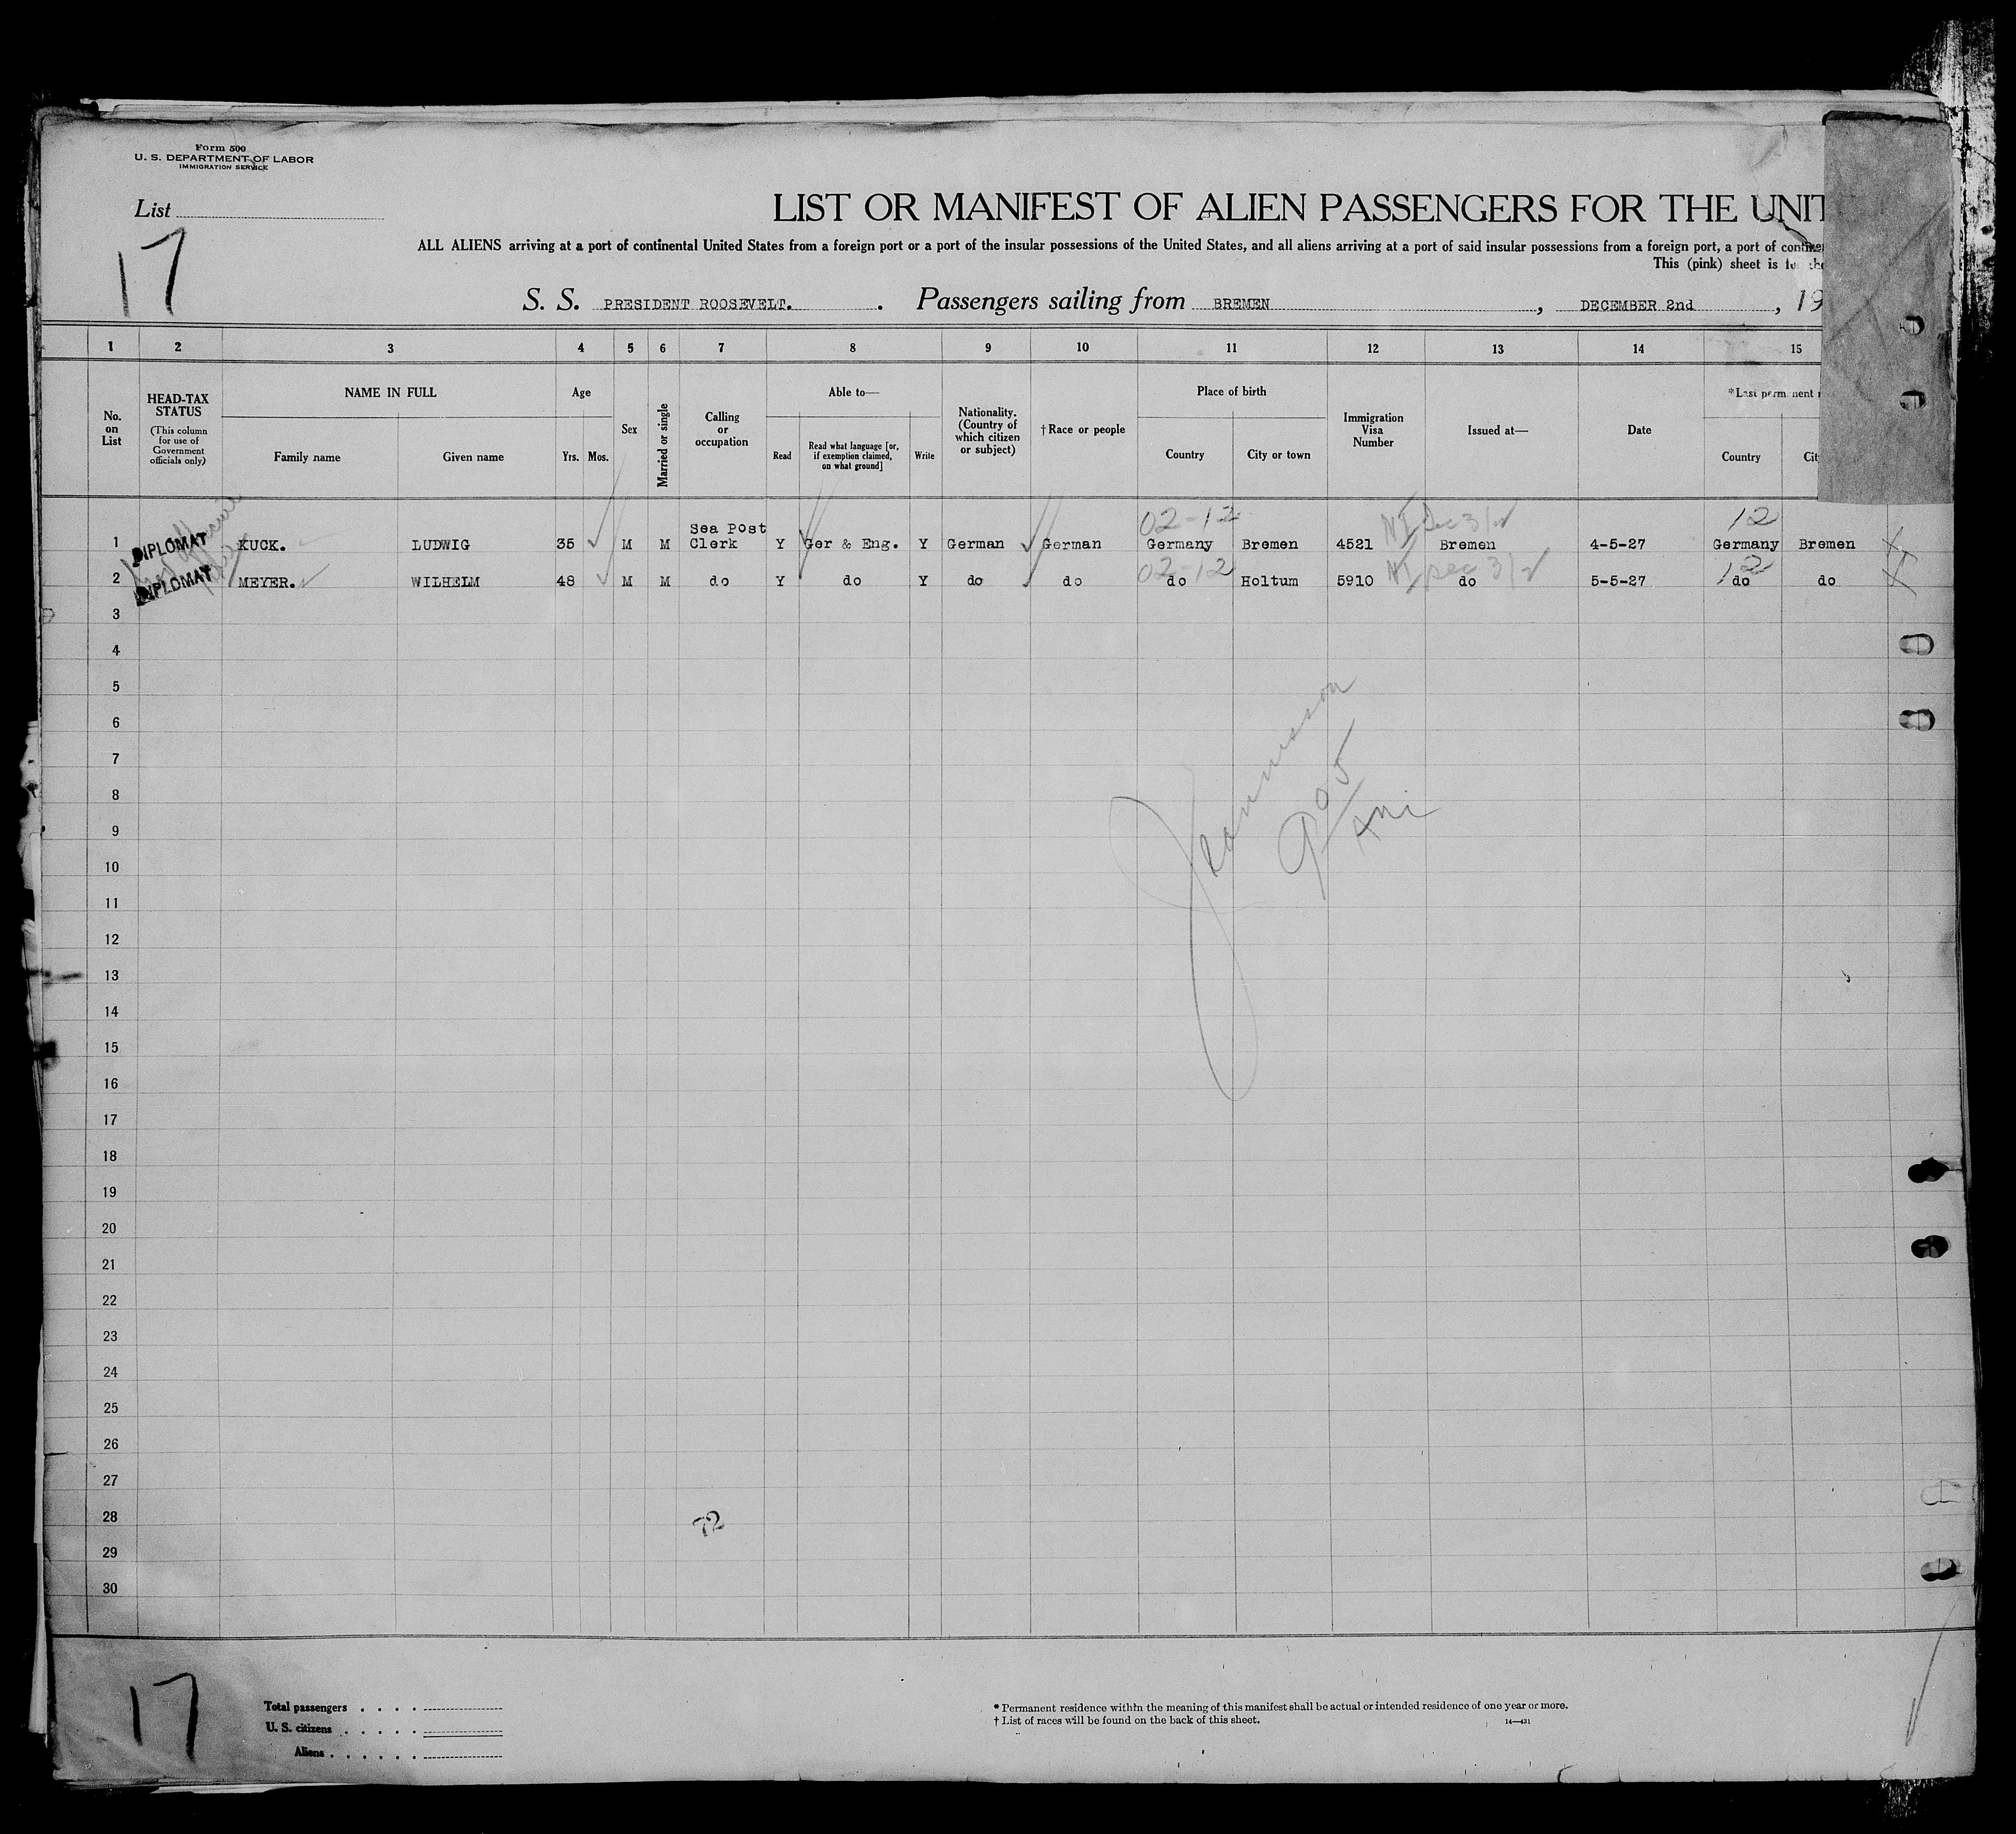 Form 500
U. S. DEPARTMENT OF LABOR
IMMIGRATION SERVICE
List
17
LIST OR MANIFEST OF ALIEN PASSENGERS FOR THE UNIT
ALL ALIENS arriving at a port of continental United States from a foreign port or a port of the insular possessions of the United States, and all aliens arriving at a port of said insular possessions from a foreign port, a port of contine
This (pink) sheet is
S. S. PRESIDENT ROOSEVELT. . Passengers sailing from BREMEN , DECEMBER 2nd , 19
1 2 3 4 5 6 7 8 9 10 11 12 13 14 15
No. on List
HEAD-TAX STATUS (This column for use of Government officials only)
NAME IN FULL
Family name Given name
Age
Yrs. Mos.
Sex
Married or single
Calling or occupation
Able to—
Read
Read what language [or, if exemption claimed, on what ground]
Write
Nationality. (Country of which citizen or subject)
† Race or people
Place of birth
Country City or town
Immigration Visa Number
Issued at—
Date
* Last permanent
Country Cit
02-12 12
1 DIPLOMAT KUCK. LUDWIG 35 M M Sea Post Clerk Y Ger & Eng. Y German German Germany Bremen 4521 Bremen 4-5-27 Germany Bremen
02-12 12
2 DIPLOMAT MEYER. WILHELM 48 M M do Y do Y do do do Holtum 5910 do 5-5-27 do do
3
4
5
6
7
8
9
10
11
12
13
14
15
16
17
18
19
20
21
22
23
24
25
26
27
28
72
29
30
905
17
Total passengers . . . .
U. S. citizens . . . . .
Aliens . . . . . .
* Permanent residence within the meaning of this manifest shall be actual or intended residence of one year or more.
† List of races will be found on the back of this sheet.
14—431